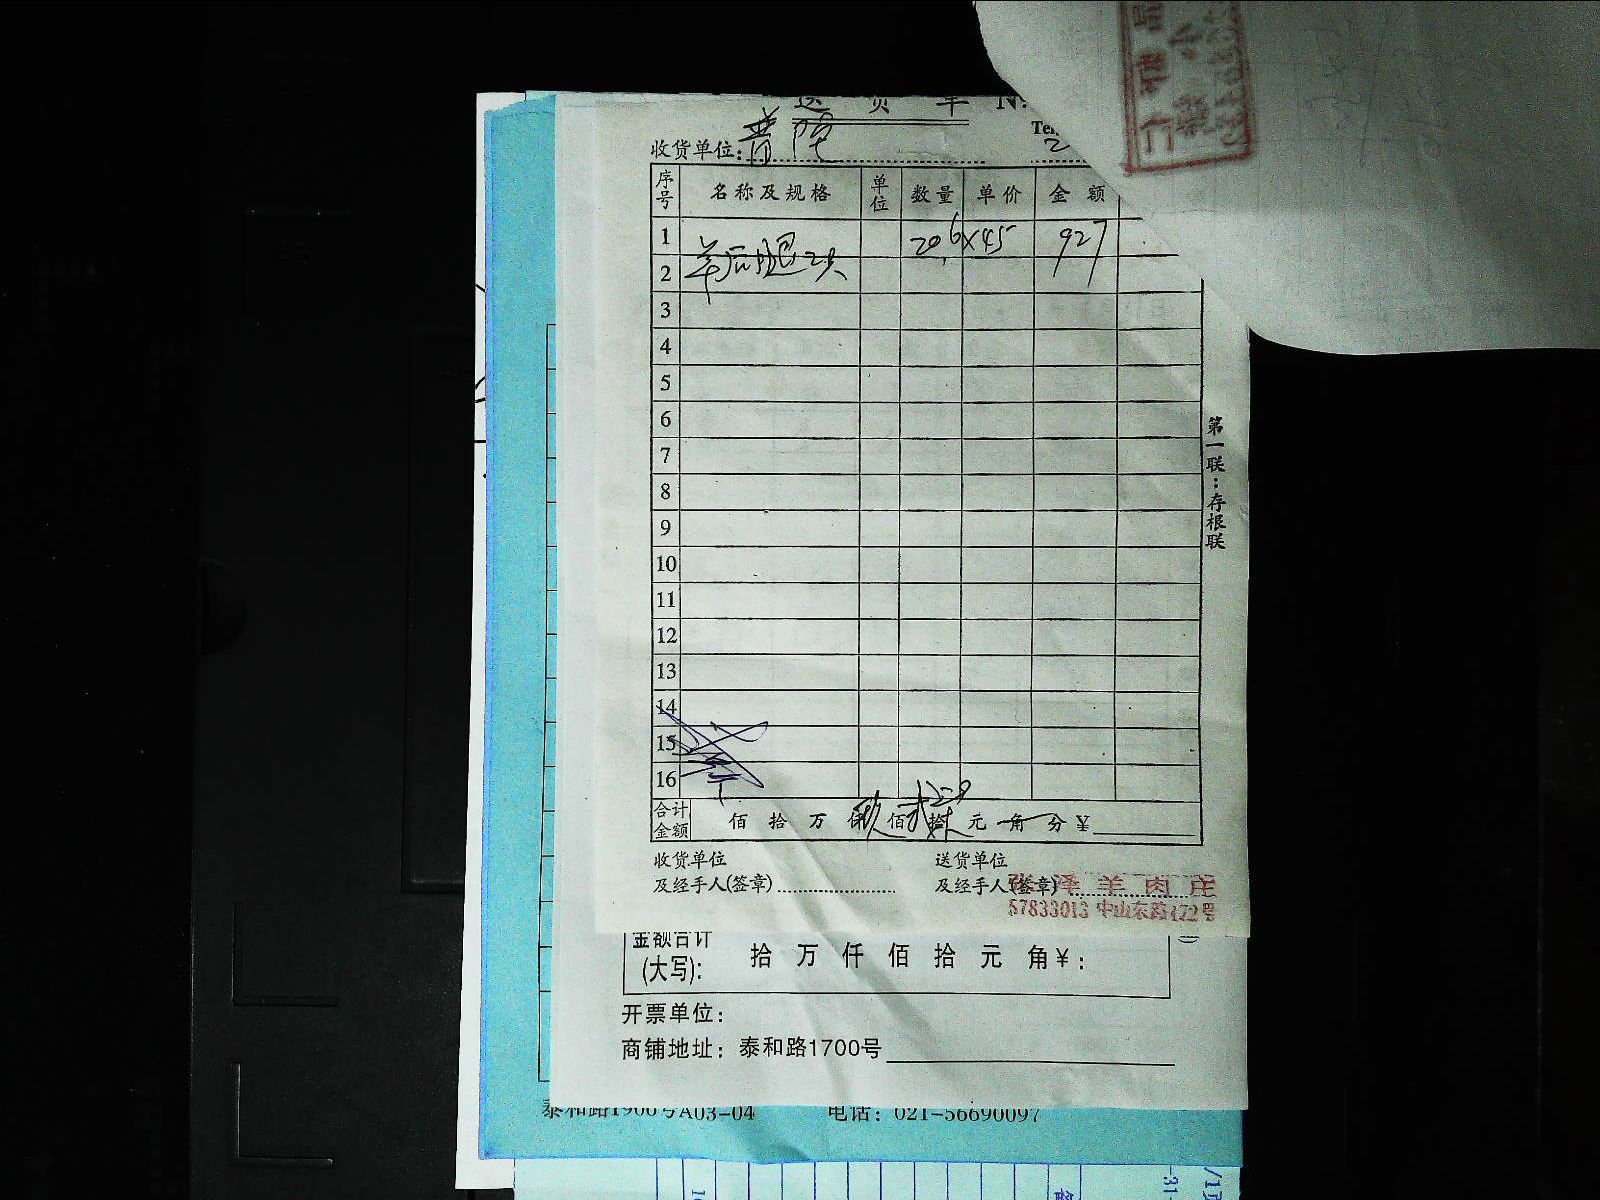 送 货 单
收货单位: 普陀
序号 名称及规格 单位 数量 单价 金额
1 羊后腿2只 20.6×45 927
2
3
4
5
6
7
8
9
10
11
12
13
14
15
16
合计金额 佰 拾 万 仟 佰 拾 元 角 分 ¥
收货单位 送货单位
及经手人(签章) 及经手人(签章)
张泽羊肉庄
57833013 中山东路172号
第一联：存根联
金额合计
(大写): 拾 万 仟 佰 拾 元 角 ¥:
开票单位:
商铺地址: 泰和路1700号
泰和路1900号A03-04 电话: 021-56690097